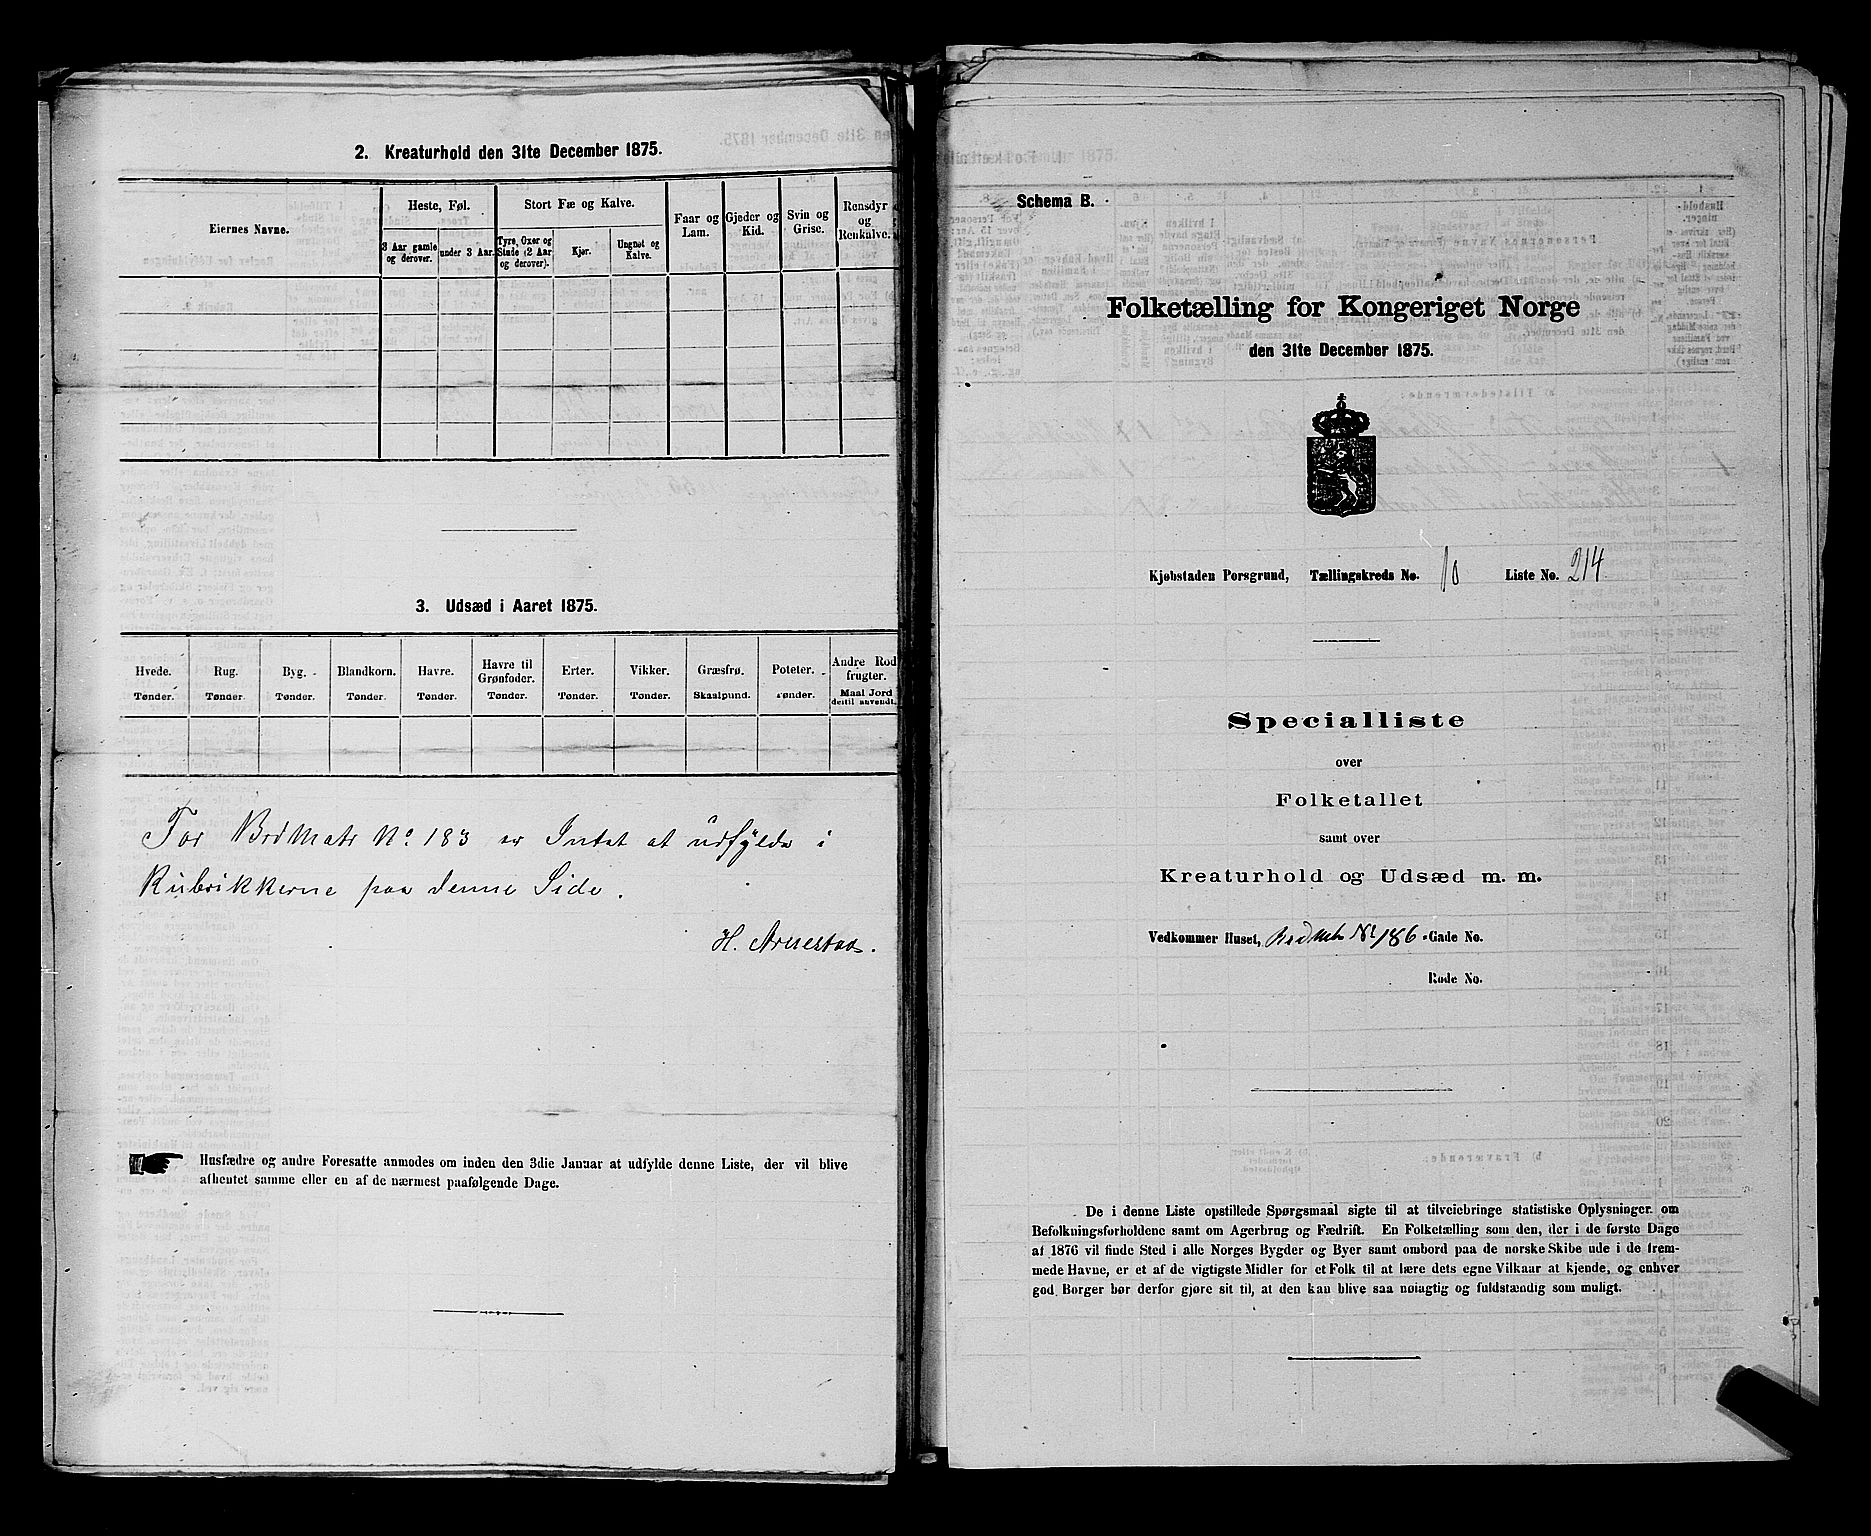 2. Kreaturhold den 31te December 1875.
Eiernes Navne.
Heste, Føl.
Stort Fæ og Kalve.
Faar og
Lam.
Gjeder og
Kid.
Svin og
Grise.
Rensdyr
og
Renkalve.
3 Aar gamle
og derover.
under 3 Aar.
Tyre, Oxer og
Stude (2 Aar
og derover).
Kjør.
Ungnøt og
Kalve.
3. Udsæd i Aaret 1875.
Hvede.
Tønder.
Rug.
Tønder.
Byg.
Tønder.
Blandkorn.
Tønder.
Havre.
Tønder.
Havre til
Grønfoder.
Tønder.
Erter.
Tønder.
Vikker.
Tønder.
Græsfrø.
Skaalpund.
Poteter.
Tønder.
Andre Rod
frugter.
Maal Jord
dertil anvendt.
For BrdMatr No. 183 er Intet at udfylde i
Rubrikkerne paa denne Side.
H. Arnestad.
Husfædre og andre Foresatte anmodes om inden den 3die Januar at udfylde denne Liste, der vil blive
afhentet samme eller en af de nærmest paafølgende Dage.
Schema B.
Folketælling for Kongeriget Norge
den 31te December 1875.
Kjøbstaden Porsgrund, Tællingskreds No. 10 Liste No. 214
Specialliste
over
Folketallet
samt over
Kreaturhold og Udsæd m. m.
Vedkommer Huset, No 186 Gade No.
Rode No.
De i denne Liste opstillede Spørgsmaal sigte til at tilveiebringe statistiske Oplysninger om
Befolkningsforholdene samt om Agerbrug og Fædrift. En Folketælling som den, der i de første Dage
af 1876 vil finde Sted i alle Norges Bygder og Byer samt ombord paa de norske Skibe ude i de frem-
mede Havne, er et af de vigtigste Midler for et Folk til at lære dets egne Vilkaar at kjende, og enhver
god Borger bør derfor gjøre sit til, at den kan blive saa nøiagtig og fuldstændig som muligt.